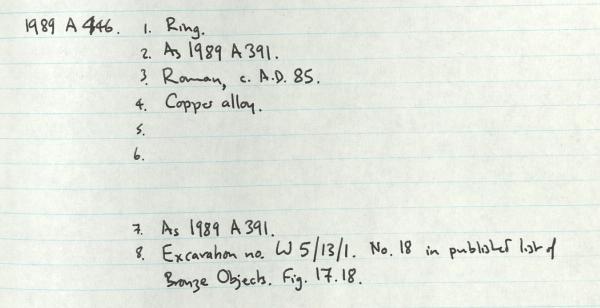 1989 A 446. 1. Ring.
2. As 1989 A 391.
3. Roman, c. A.D. 85.
4. Copper alloy.
5.
6.
7. As 1989 A 391.
8. Excavation no. W 5/13/1. No. 18 in published list of
Bronze Objects. Fig. 17.18.